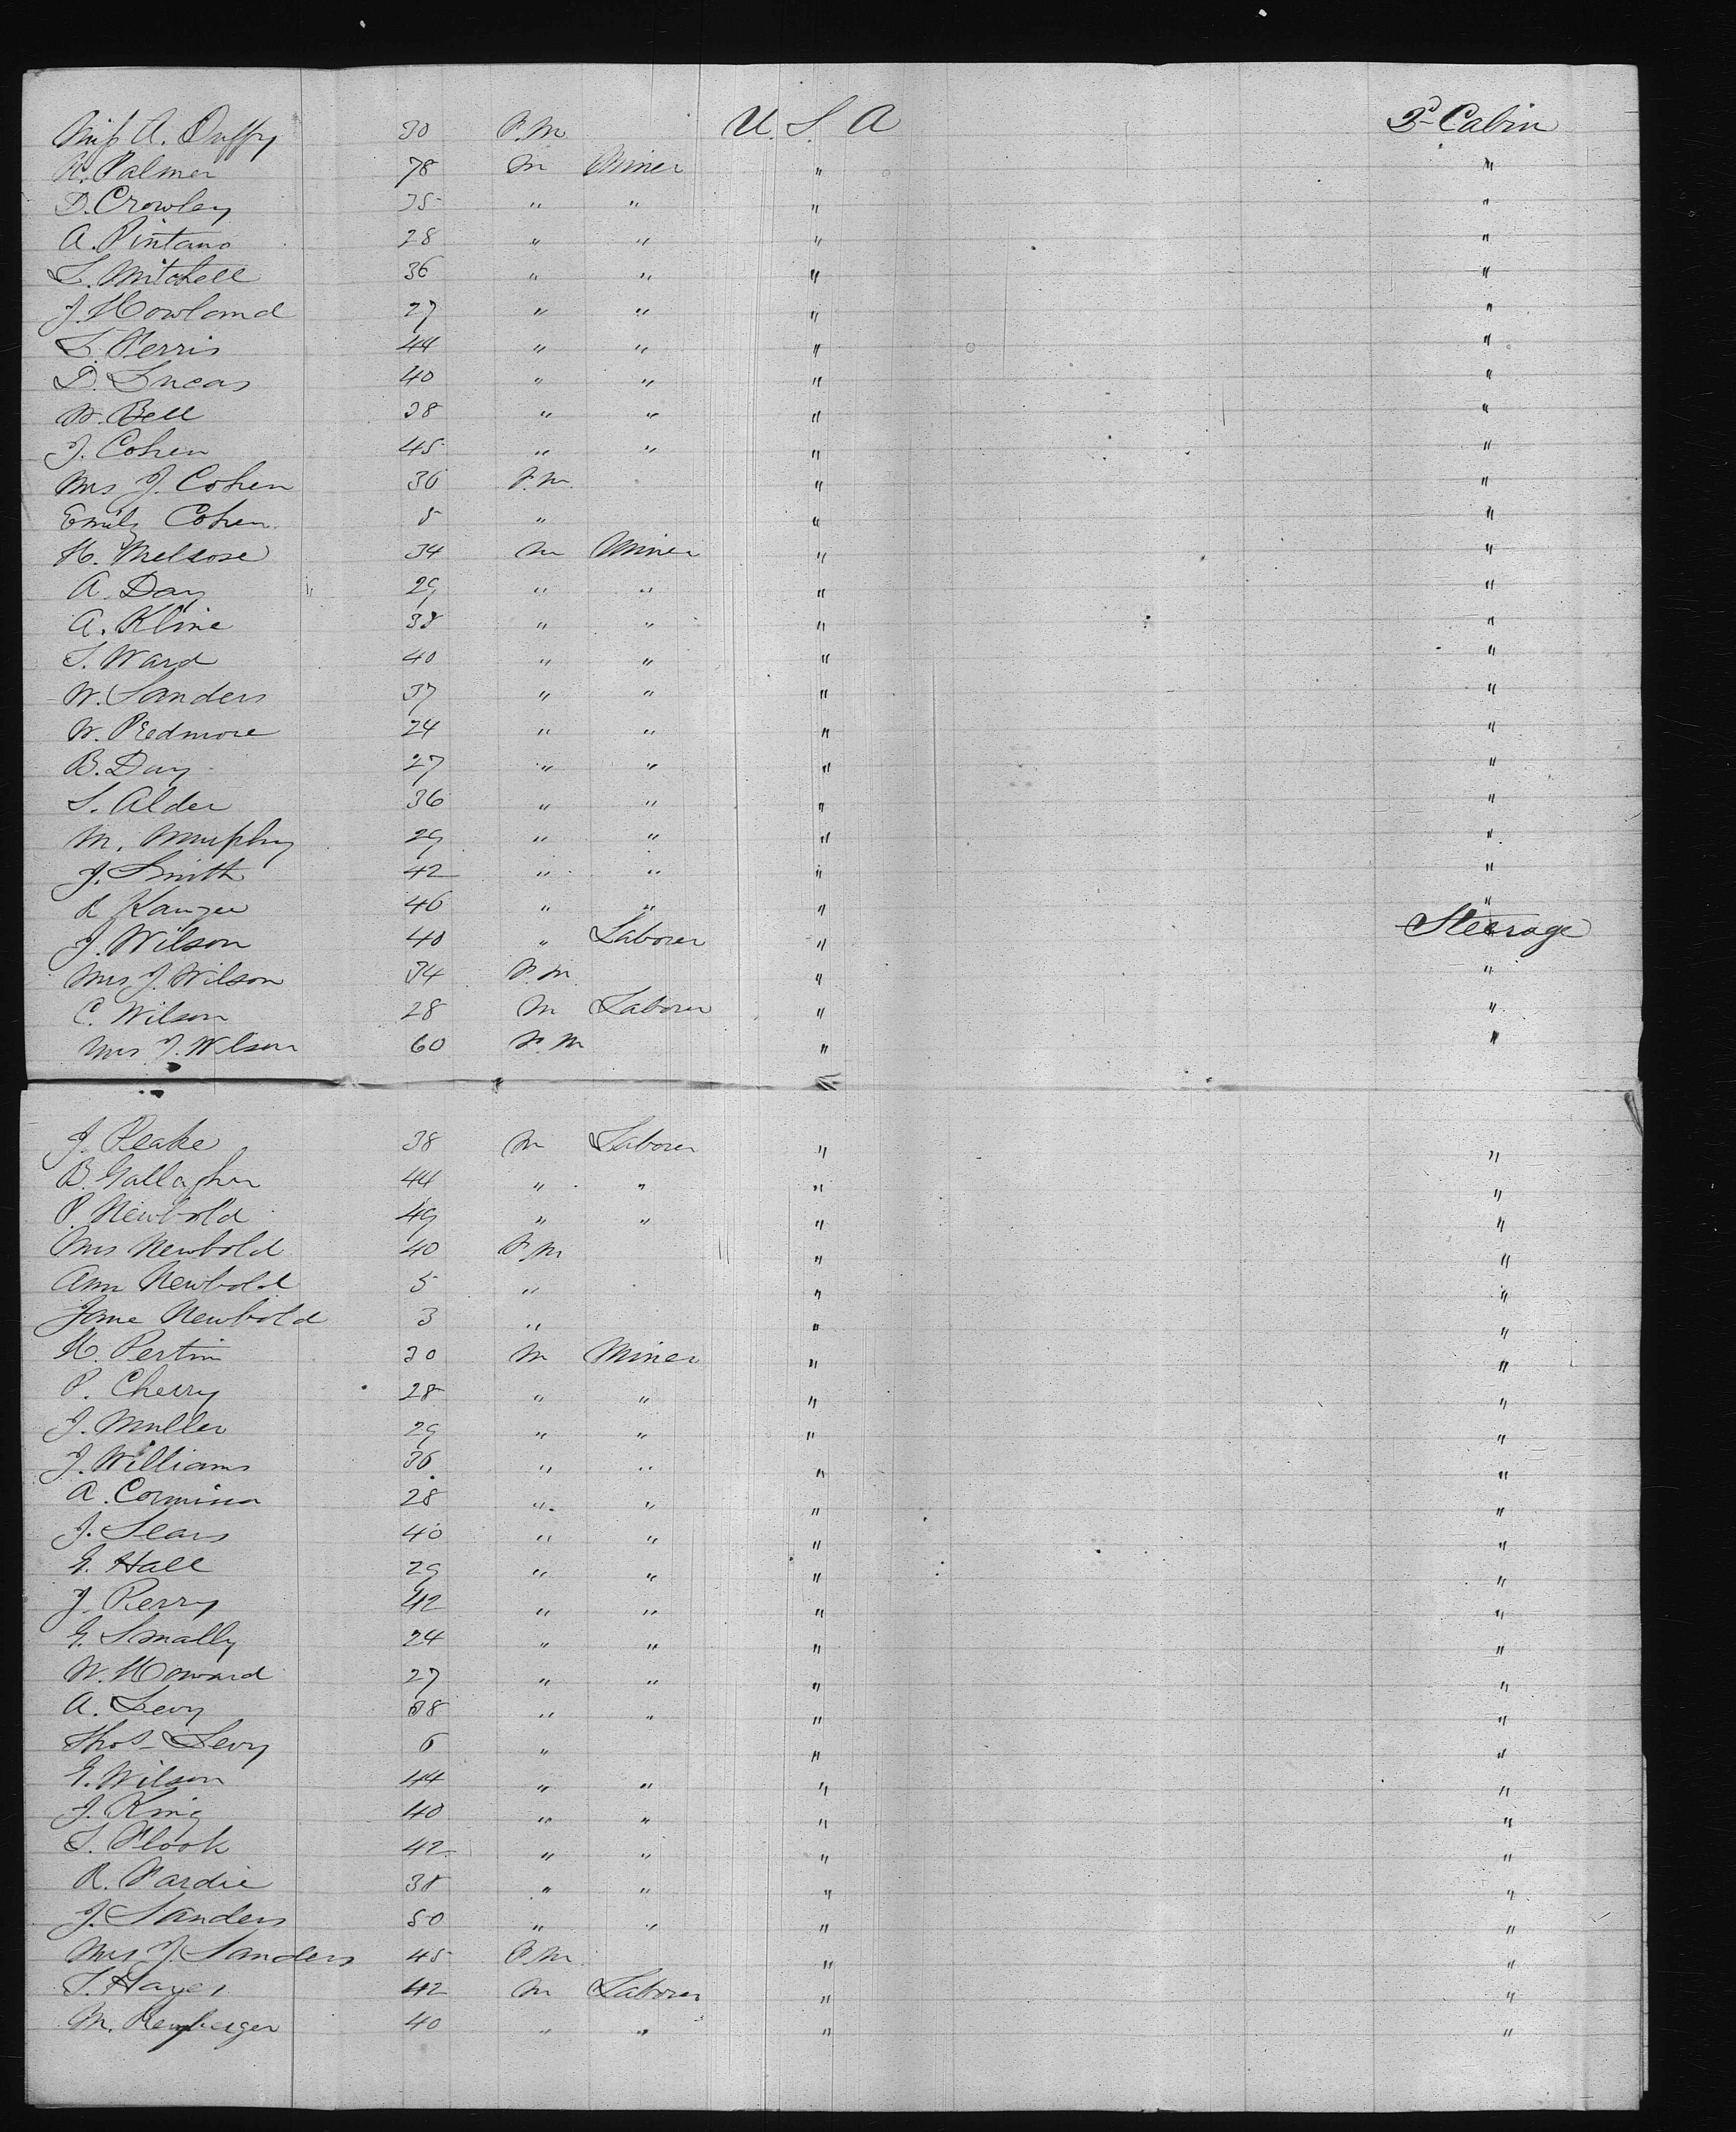 Miss A. Duffy 30 F.m U. S A 2d Cabin
R. Palmer 78 m Miner " "
D. Crowley 35 " " " "
A. Pintano 28 " " " "
L. Mitchell 36 " " " "
J. Howland 27 " " " "
L. Ferris 44 " " " "
D. Lucas 40 " " " "
W. Bell 38 " " " "
J. Cohen 45 " " " "
Mrs J. Cohen 36 F.m. " "
Emily Cohen 5 " " "
H. Melrose 34 m Miner " "
A. Day 29 " " " "
A. Kline 38 " " " "
S. Ward 40 " " " "
W. Sanders 37 " " " "
W. Redmore 24 " " " "
B. Day 27 " " " "
S. Alder 36 " " " "
M. Murphy 29 " " " "
J. Smith 42 " " " "
46 " " " "
J. Wilson 40 " Laborer " Steerage
Mrs J. Wilson 34 F.m. " "
C. Wilson 28 m Laborer " "
Mrs J. Wilson 60 F.m " "
J. Peake 38 m Laborer " "
B. Gallagher 44 " " " "
P. Newbold 49 " " " "
Mrs Newbold 40 F.m " "
Ann Newbold 5 " " "
Jane Newbold 3 " " "
H. Pertin 30 m Miner " "
P. Cherry 28 " " " "
J. Muller 29 " " " "
J. Williams 36 " " " "
A. 28 " " " "
J. Sears 40 " " " "
G. Hall 29 " " " "
J. Perry 42 " " " "
G. Smally 24 " " " "
W. Howard 27 " " " "
A. Levy 38 " " " "
Thos Levy 6 " " "
G. Wilson 44 " " " "
J. King 40 " " " "
S. Flook 42 " " " "
R. Fardie 38 " " " "
J. Sanders 50 " " " "
Mrs J. Sanders 45 F.m. " "
S. Hayes 42 m Laborer " "
M. 40 " " " "